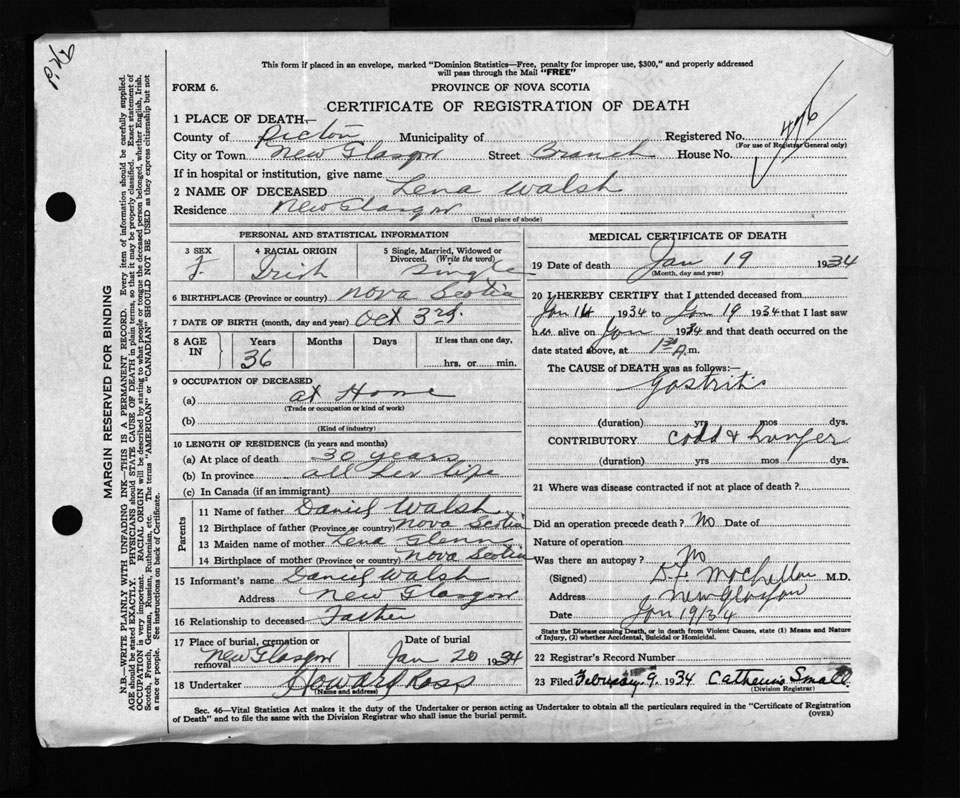 P. 476
This form if placed in an envelope, marked "Dominion Statistics—Free, penalty for improper use, $300," and properly addressed
will pass through the Mail "FREE"
FORM 6.
PROVINCE OF NOVA SCOTIA
CERTIFICATE OF REGISTRATION OF DEATH
1 PLACE OF DEATH—
County of Pictou Municipality of Registered No. 476
(For use of Registrar General only)
City or Town New Glasgow Street Branch House No.
If in hospital or institution, give name
2 NAME OF DECEASED Lena Walsh
Residence New Glasgow
(Usual place of abode)
PERSONAL AND STATISTICAL INFORMATION
3 SEX F. 4 RACIAL ORIGIN Irish 5 Single, Married, Widowed or Divorced. (Write the word) Single
6 BIRTHPLACE (Province or country) Nova Scotia
7 DATE OF BIRTH (month, day and year) Oct 3rd.
8 AGE IN Years 36 Months Days If less than one day, hrs. or min.
9 OCCUPATION OF DECEASED
(a) at Home
(Trade or occupation or kind of work)
(b)
(Kind of industry)
10 LENGTH OF RESIDENCE (in years and months)
(a) At place of death 30 years
(b) In province all her life
(c) In Canada (if an immigrant)
Parents
11 Name of father Daniel Walsh
12 Birthplace of father (Province or country) Nova Scotia
13 Maiden name of mother Lena Glenn
14 Birthplace of mother (Province or country) Nova Scotia
15 Informant's name Daniel Walsh
Address New Glasgow
16 Relationship to deceased Father
17 Place of burial, cremation or removal New Glasgow Date of burial Jan 20 1934
18 Undertaker Howard Ross
(Name and address)
MEDICAL CERTIFICATE OF DEATH
19 Date of death Jan 19 1934
(Month, day and year)
20 I HEREBY CERTIFY that I attended deceased from
Jan 1934 to Jan 19 1934 that I last saw
her alive on Jan 1934 and that death occurred on
date stated above, at 1 30 A.m.
The CAUSE of DEATH was as follows:—
Gastritis
(duration) yrs mos dys.
CONTRIBUTORY Cold & hunger
(duration) yrs mos dys.
21 Where was disease contracted if not at place of death?
Did an operation precede death? No Date of
Nature of operation
Was there an autopsy? No
(Signed) M.D.
Address New Glasgow
Date Jan 19/34
State the Disease causing Death, or in death from Violent Causes, state (1) Means and Nature
of Injury, (2) whether Accidental, Suicidal or Homicidal.
22 Registrar's Record Number
23 Filed February 9. 1934 Catherine Small
(Division Registrar)
Sec. 46—Vital Statistics Act makes it the duty of the Undertaker or person acting as Undertaker to obtain all the particulars required in the "Certificate of Registration
of Death" and to file the same with the Division Registrar who shall issue the burial permit.
(OVER)
MARGIN RESERVED FOR BINDING
N.B.—WRITE PLAINLY WITH UNFADING INK—THIS IS A PERMANENT RECORD. Every item of information should be carefully supplied.
AGE should be stated EXACTLY. PHYSICIANS should STATE CAUSE OF DEATH in plain terms, so that it may be properly classified. Exact statement of
OCCUPATION is very important. RACIAL ORIGIN will be described by stating to what people or tongue the deceased person belonged, whether English, Irish,
Scotch, French, German, Russian, Ruthenian, etc. The terms "AMERICAN" or "CANADIAN" SHOULD NOT BE USED as they express citizenship but not
a race or people. See instructions on back of Certificate.